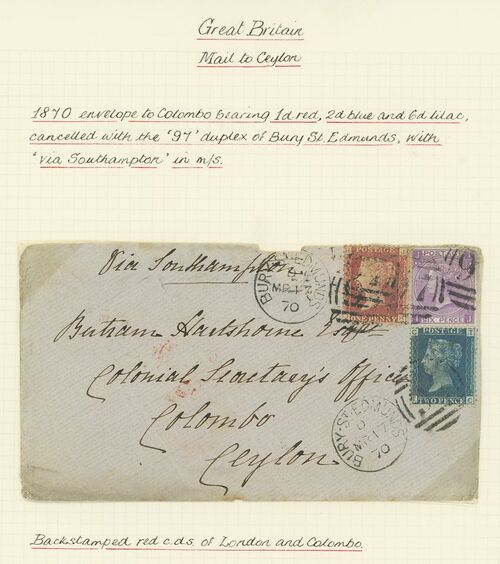 Great Britain
Mail to Ceylon
1870 envelope to Colombo bearing 1d red, 2d blue and 6d lilac,
cancelled with the '97' duplex of Bury St. Edmunds, with
'via Southampton' in m/s.
Via Southampton
BURY ST. EDMUNDS
MR 17
70
POSTAGE
ONE PENNY
POSTAGE
SIX PENCE
Bertram Hartshorne Esqre
Colonial Secretary's Office
Colombo
Ceylon
POSTAGE
TWO PENCE
BURY ST. EDMUNDS
MR 17
70
Backstamped red c.d.s. of London and Colombo.